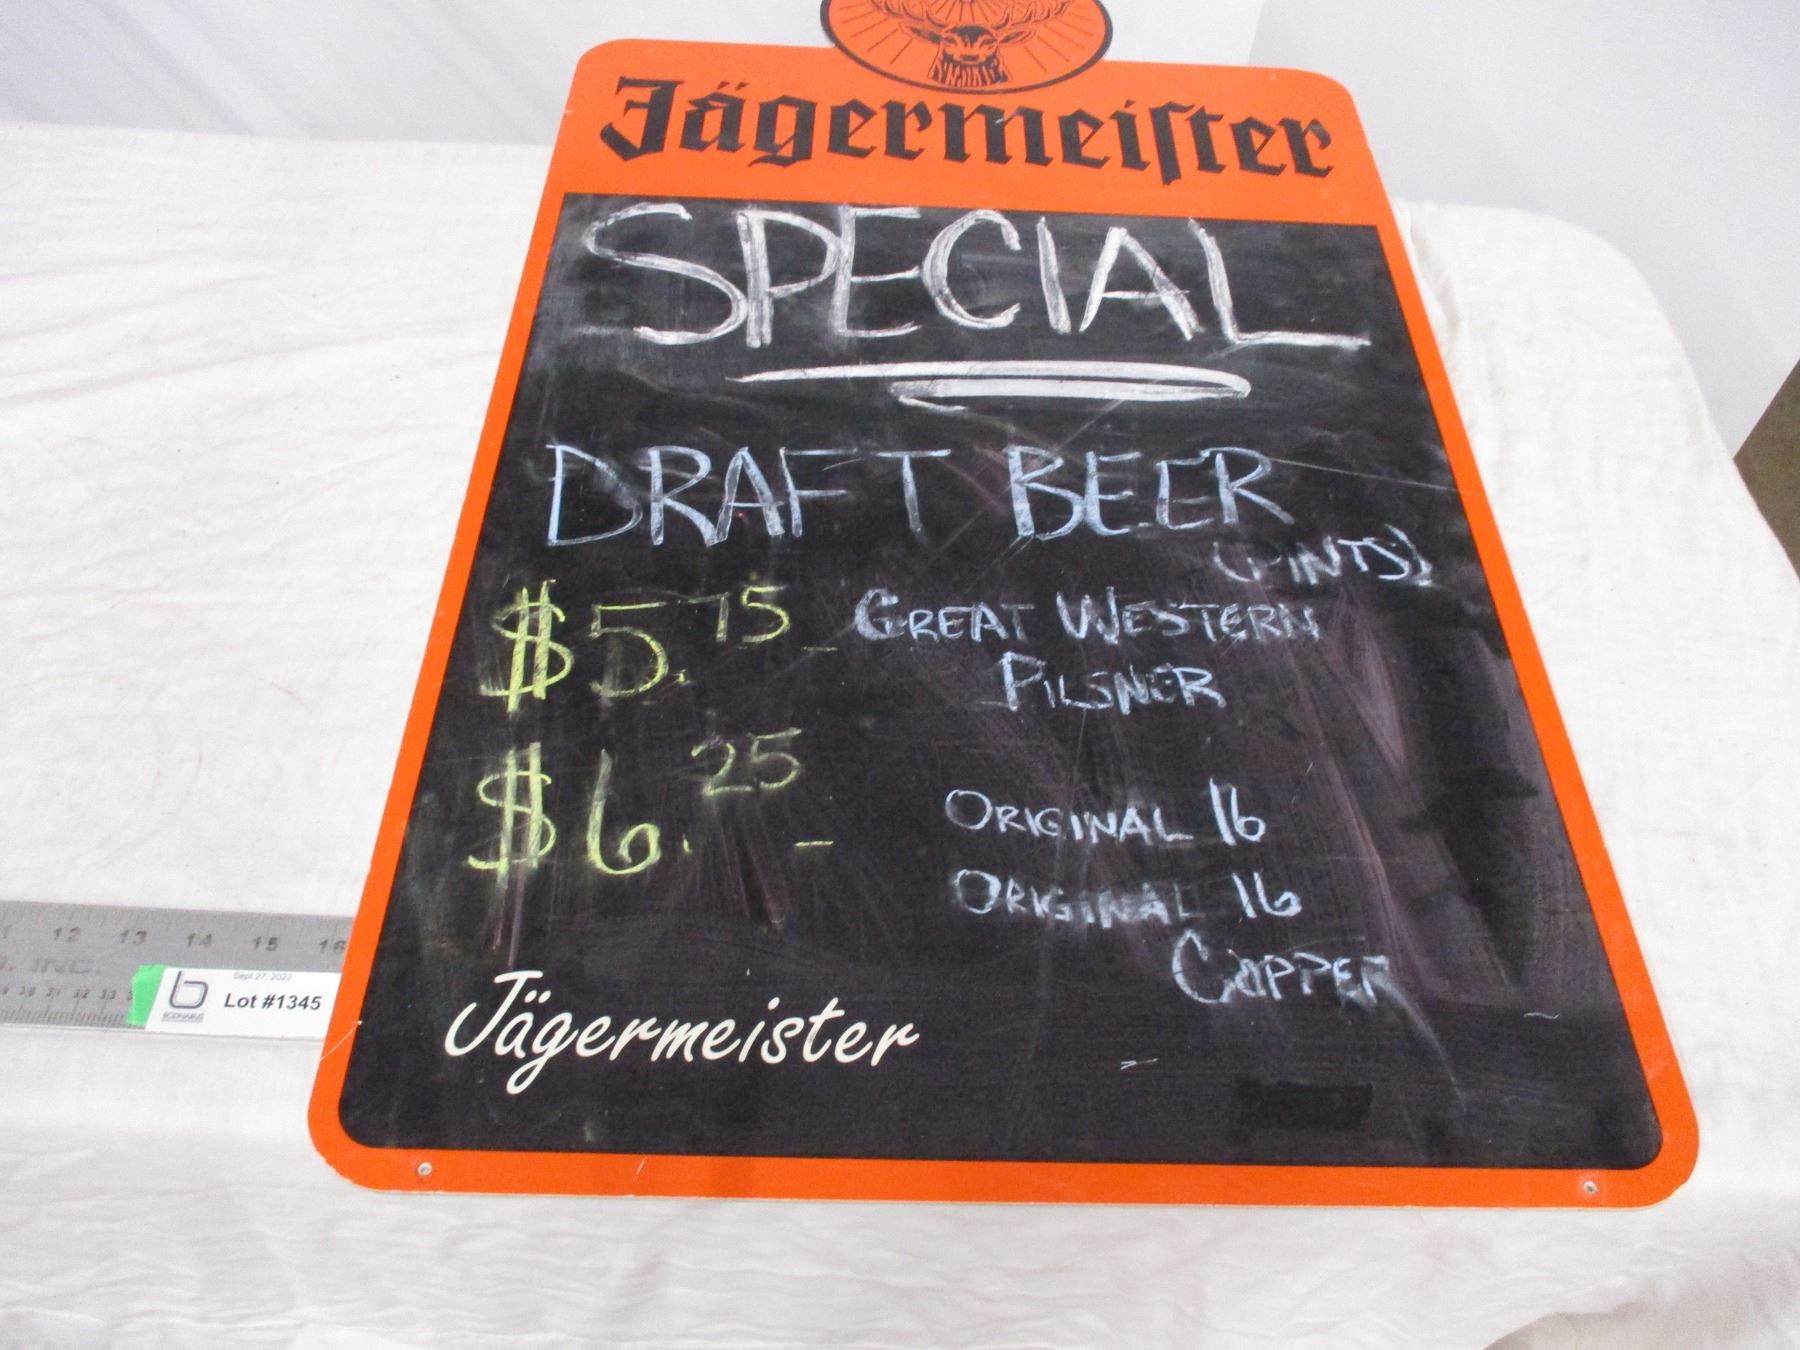 Jägermeiſter
SPECIAL
DRAFT BEER
(PINTS)
$5.75 - GREAT WESTERN
PILSNER
$6.25 - ORIGINAL 16
ORIGINAL 16
COPPER
Jägermeister
12 13 14 15 16
INC.
30 31 32 33
Sept 27, 2022
b Lot #1345
BODNARUS